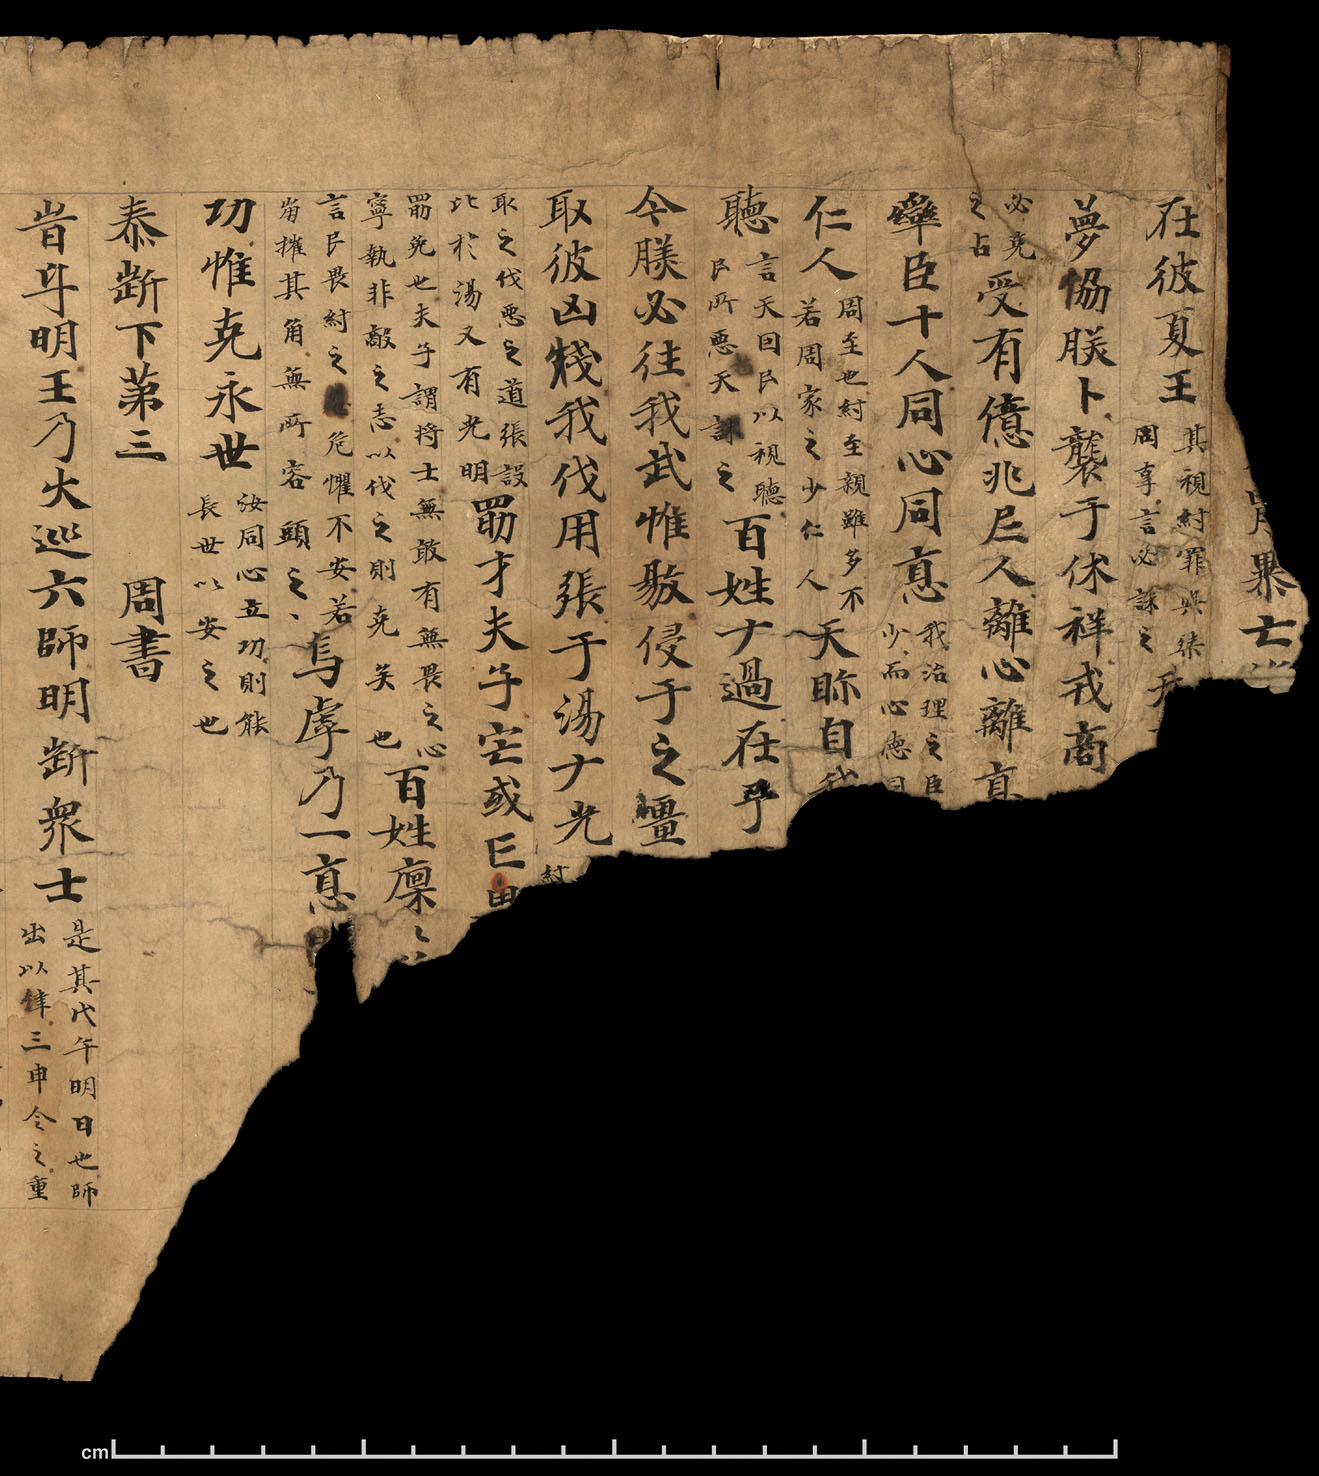 在彼夏王其視紂罪與桀
同辜言必誅之
夢協朕卜襲于休祥戎商
必克
之占受有億兆𡰥人離心離
䜌臣十人同心同悳我治理之臣
少而心德同
仁人周至也紂至親雖多不
若周家之少仁人天眎自我
聽言天因民以視聽
民所惡天誅之百姓ナ過在乎
今朕必往我武惟敭侵于之壃
取彼凶殘我伐用張于湯ナ光紂
取之伐惡之道張設
比於湯又有光明勖才夫子宅或亡畏
勖勉也夫子謂將士無敢有無畏之心
寧執非敵之志以伐之則克矣也百姓廩〻
言民畏紂之危懼不安若
崩摧其角無所容頭之烏虖乃一悳
功惟克永世汝同心立功則能
長世以安之也
泰斷下苐三　周書
旹㕂明王乃大巡六師明斷衆士是其戊午明日也師
出以律三申令之重